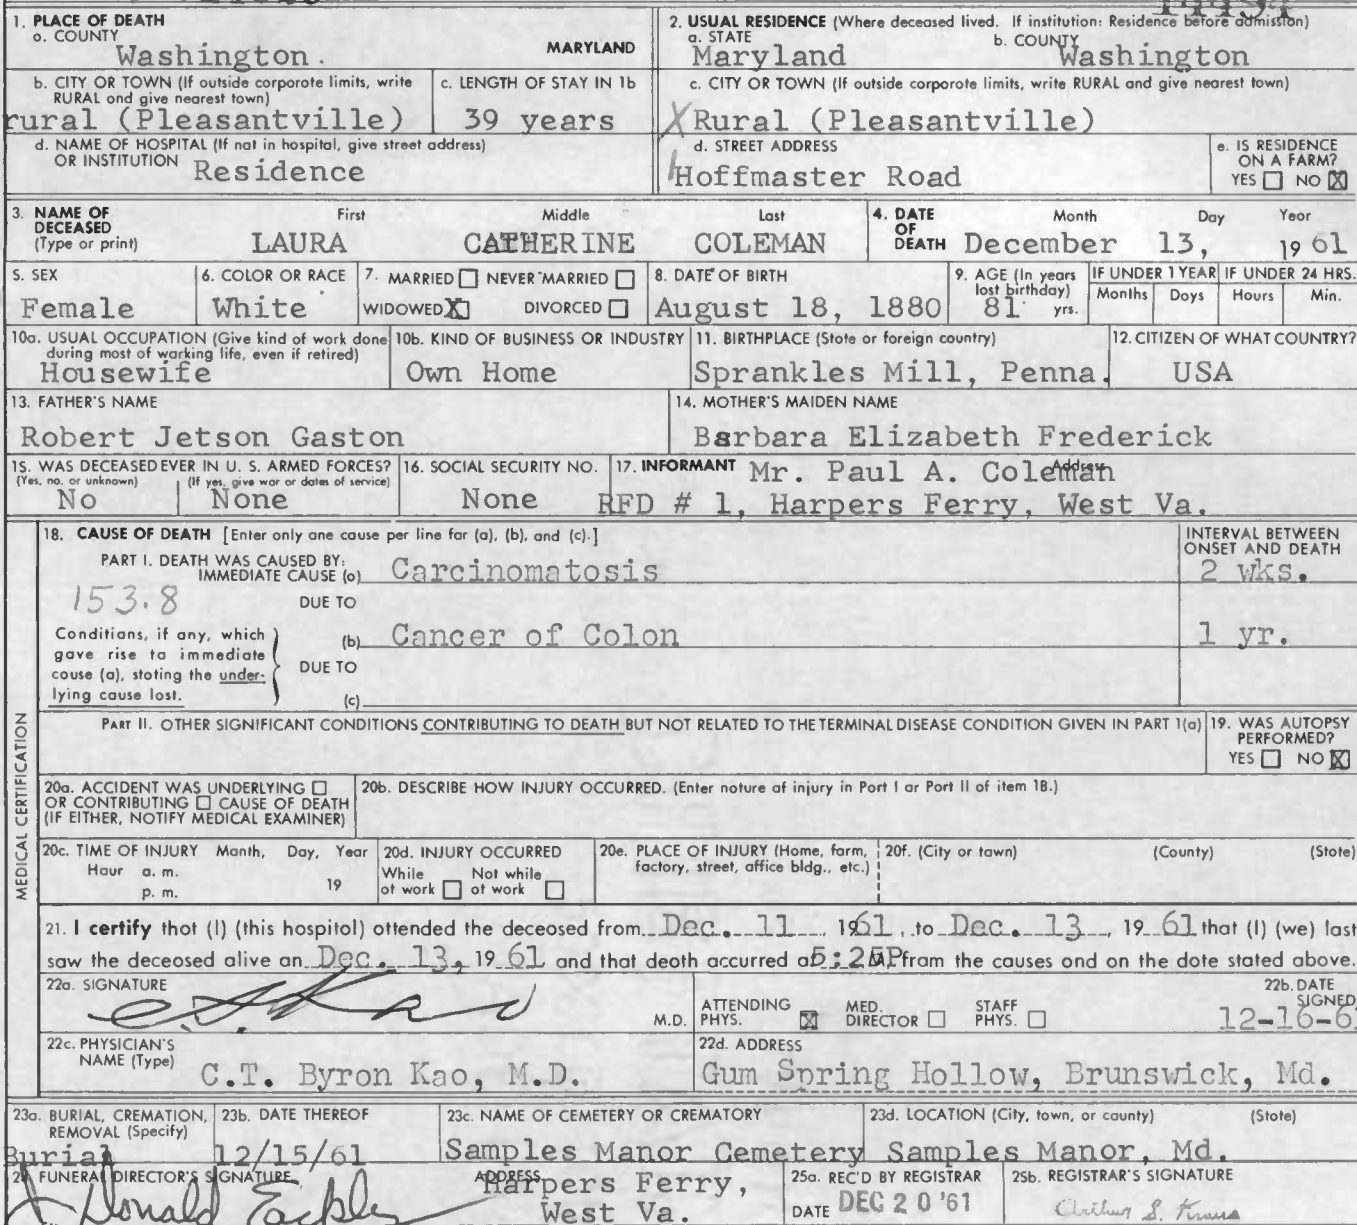 1. PLACE OF DEATH
a. COUNTY
Washington. MARYLAND
2. USUAL RESIDENCE (Where deceased lived. If institution: Residence before admission)
a. STATE b. COUNTY
Maryland Washington
b. CITY OR TOWN (If outside corporate limits, write RURAL and give nearest town)
rural (Pleasantville)
c. LENGTH OF STAY IN 1b
39 years
c. CITY OR TOWN (If outside corporate limits, write RURAL and give nearest town)
X Rural (Pleasantville)
d. NAME OF HOSPITAL (If not in hospital, give street address)
OR INSTITUTION Residence
d. STREET ADDRESS
Hoffmaster Road
e. IS RESIDENCE
ON A FARM?
YES ☐ NO ☒
3. NAME OF
DECEASED
(Type or print)
First Middle Last
LAURA CATHERINE COLEMAN
4. DATE
OF
DEATH
Month Day Year
December 13, 1961
5. SEX
Female
6. COLOR OR RACE
White
7. MARRIED ☐ NEVER MARRIED ☐
WIDOWED ☒ DIVORCED ☐
8. DATE OF BIRTH
August 18, 1880
9. AGE (In years
last birthday)
81 yrs.
IF UNDER 1 YEAR IF UNDER 24 HRS.
Months Days Hours Min.
10a. USUAL OCCUPATION (Give kind of work done
during most of working life, even if retired)
Housewife
10b. KIND OF BUSINESS OR INDUSTRY
Own Home
11. BIRTHPLACE (State or foreign country)
Sprankles Mill, Penna.
12. CITIZEN OF WHAT COUNTRY?
USA
13. FATHER'S NAME
Robert Jetson Gaston
14. MOTHER'S MAIDEN NAME
Barbara Elizabeth Frederick
15. WAS DECEASED EVER IN U. S. ARMED FORCES?
(Yes, no, or unknown) (If yes, give war or dates of service)
No None
16. SOCIAL SECURITY NO.
None
17. INFORMANT Mr. Paul A. Coleman Address
RFD # 1, Harpers Ferry, West Va.
MEDICAL CERTIFICATION
18. CAUSE OF DEATH [Enter only one cause per line for (a), (b), and (c).]
INTERVAL BETWEEN
ONSET AND DEATH
PART I. DEATH WAS CAUSED BY:
IMMEDIATE CAUSE (a) Carcinomatosis 2 wks.
153.8 DUE TO
Conditions, if any, which
gave rise to immediate
cause (a), stating the under-
lying cause last.
(b) Cancer of Colon 1 yr.
DUE TO
(c)
PART II. OTHER SIGNIFICANT CONDITIONS CONTRIBUTING TO DEATH BUT NOT RELATED TO THE TERMINAL DISEASE CONDITION GIVEN IN PART 1(a)
19. WAS AUTOPSY
PERFORMED?
YES ☐ NO ☒
20a. ACCIDENT WAS UNDERLYING ☐
OR CONTRIBUTING ☐ CAUSE OF DEATH
(IF EITHER, NOTIFY MEDICAL EXAMINER)
20b. DESCRIBE HOW INJURY OCCURRED. (Enter nature of injury in Part I or Part II of item 18.)
20c. TIME OF INJURY Month, Day, Year
Hour a. m.
p. m. 19
20d. INJURY OCCURRED
While Not while
at work ☐ at work ☐
20e. PLACE OF INJURY (Home, farm,
factory, street, office bldg., etc.)
20f. (City or town) (County) (State)
21. I certify that (I) (this hospital) attended the deceased from Dec. 11 1961, to Dec. 13, 19 61 that (I) (we) last
saw the deceased alive on Dec. 13, 19 61 and that death occurred at 5:25 P from the causes and on the date stated above.
22a. SIGNATURE
M.D.
ATTENDING
PHYS. ☒
MED.
DIRECTOR ☐
STAFF
PHYS. ☐
22b. DATE
SIGNED
12-16-61
22c. PHYSICIAN'S
NAME (Type)
C.T. Byron Kao, M.D.
22d. ADDRESS
Gum Spring Hollow, Brunswick, Md.
23a. BURIAL, CREMATION,
REMOVAL (Specify)
Burial
23b. DATE THEREOF
12/15/61
23c. NAME OF CEMETERY OR CREMATORY
Samples Manor Cemetery
23d. LOCATION (City, town, or county) (State)
Samples Manor, Md.
24. FUNERAL DIRECTOR'S SIGNATURE
Donald Eackles
ADDRESS
Harpers Ferry,
West Va.
25a. REC'D BY REGISTRAR
DATE DEC 20 '61
25b. REGISTRAR'S SIGNATURE
Arthur S. Kraus